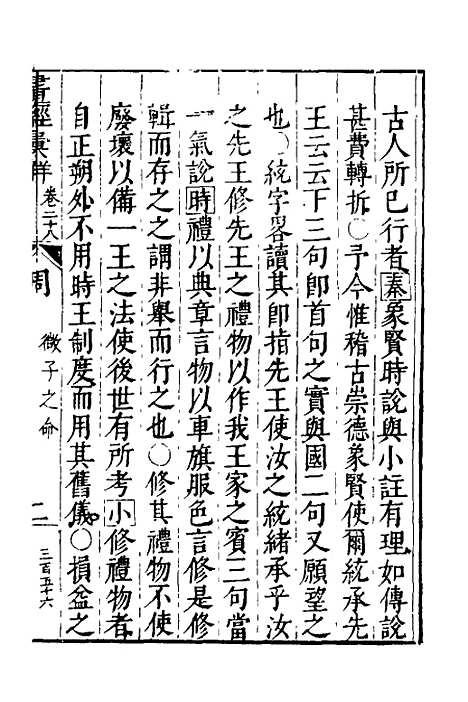 古人所已行者纂象賢時說與小註有理如傳說
甚費轉折○予今惟稽古崇德象賢使爾統承先
王云云下三句卽首句之實與國二句又願望之
也○統字畧讀其卽指先王使汝之統緒承乎汝
之先王修先王之禮物以作我王家之賓三句當
一氣說時禮以典章言物以車旗服色言修是修
輯而存之之謂非舉而行之也○修其禮物不使
廢壞以備一王之法使後世有所考小修禮物者
自正朔外不用時王制度而用其舊儀○損益之
書經彙解 卷二十八 周 微子之命 二 三百五十六